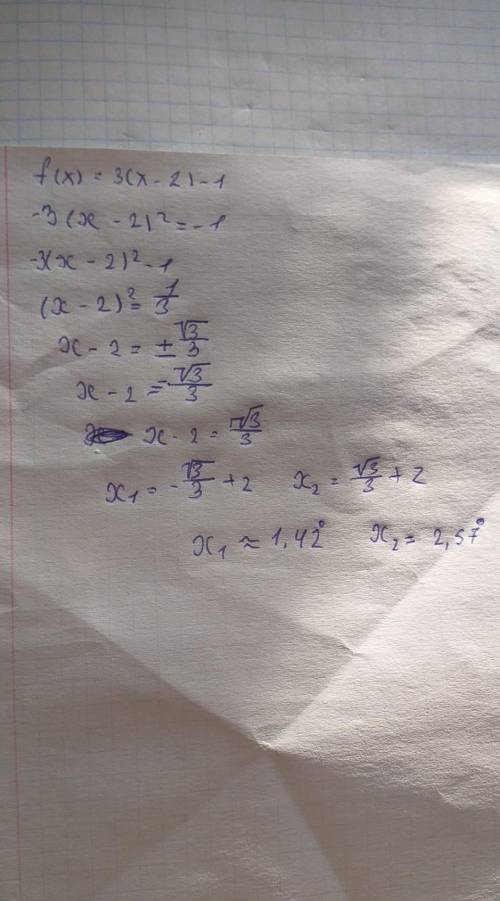 f(x) = 3(x - 2) - 1
-3(x - 2)² = -1
-3(x - 2)² - 1
(x - 2)² = 1/3
x - 2 = ± √3/3
x - 2 = -√3/3
x - 2 = √3/3
x₁ = - √3/3 + 2 x₂ = √3/3 + 2
x₁ ≈ 1,42° x₂ = 2,57°